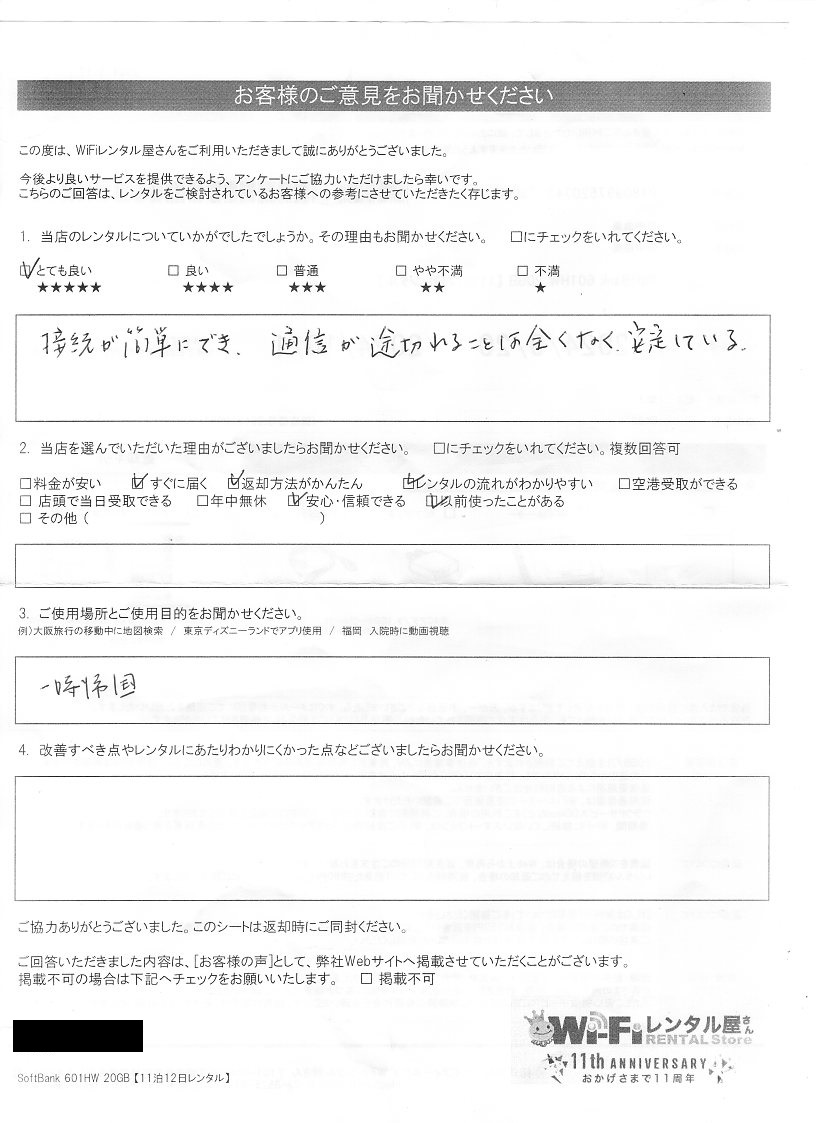 お客様のご意見をお聞かせください
この度は、WiFiレンタル屋さんをご利用いただきまして誠にありがとうございました。
今後より良いサービスを提供できるよう、アンケートにご協力いただけましたら幸いです。
こちらのご回答は、レンタルをご検討されているお客様への参考にさせていただきたく存じます。
1. 当店のレンタルについていかがでしたでしょうか。その理由もお聞かせください。 □にチェックをいれてください。
☑とても良い □ 良い □ 普通 □ やや不満 □ 不満
★★★★★ ★★★★ ★★★ ★★ ★
接続が簡単にでき、通信が途切れることは全くなく、安定している。
2. 当店を選んでいただいた理由がございましたらお聞かせください。 □にチェックをいれてください。複数回答可
□料金が安い ☑すぐに届く ☑返却方法がかんたん ☑レンタルの流れがわかりやすい □空港受取ができる
□ 店頭で当日受取できる □年中無休 ☑安心・信頼できる ☑以前使ったことがある
□ その他 ( )
3. ご使用場所とご使用目的をお聞かせください。
例)大阪旅行の移動中に地図検索 / 東京ディズニーランドでアプリ使用 / 福岡 入院時に動画視聴
一時帰国
4. 改善すべき点やレンタルにあたりわかりにくかった点などございましたらお聞かせください。
ご協力ありがとうございました。このシートは返却時にご同封ください。
ご回答いただきました内容は、[お客様の声]として、弊社Webサイトへ掲載させていただくことがございます。
掲載不可の場合は下記へチェックをお願いいたします。 □ 掲載不可
Wi-Fiレンタル屋さん
RENTAL Store
11th ANNIVERSARY
おかげさまで11周年
SoftBank 601HW 20GB【11泊12日レンタル】